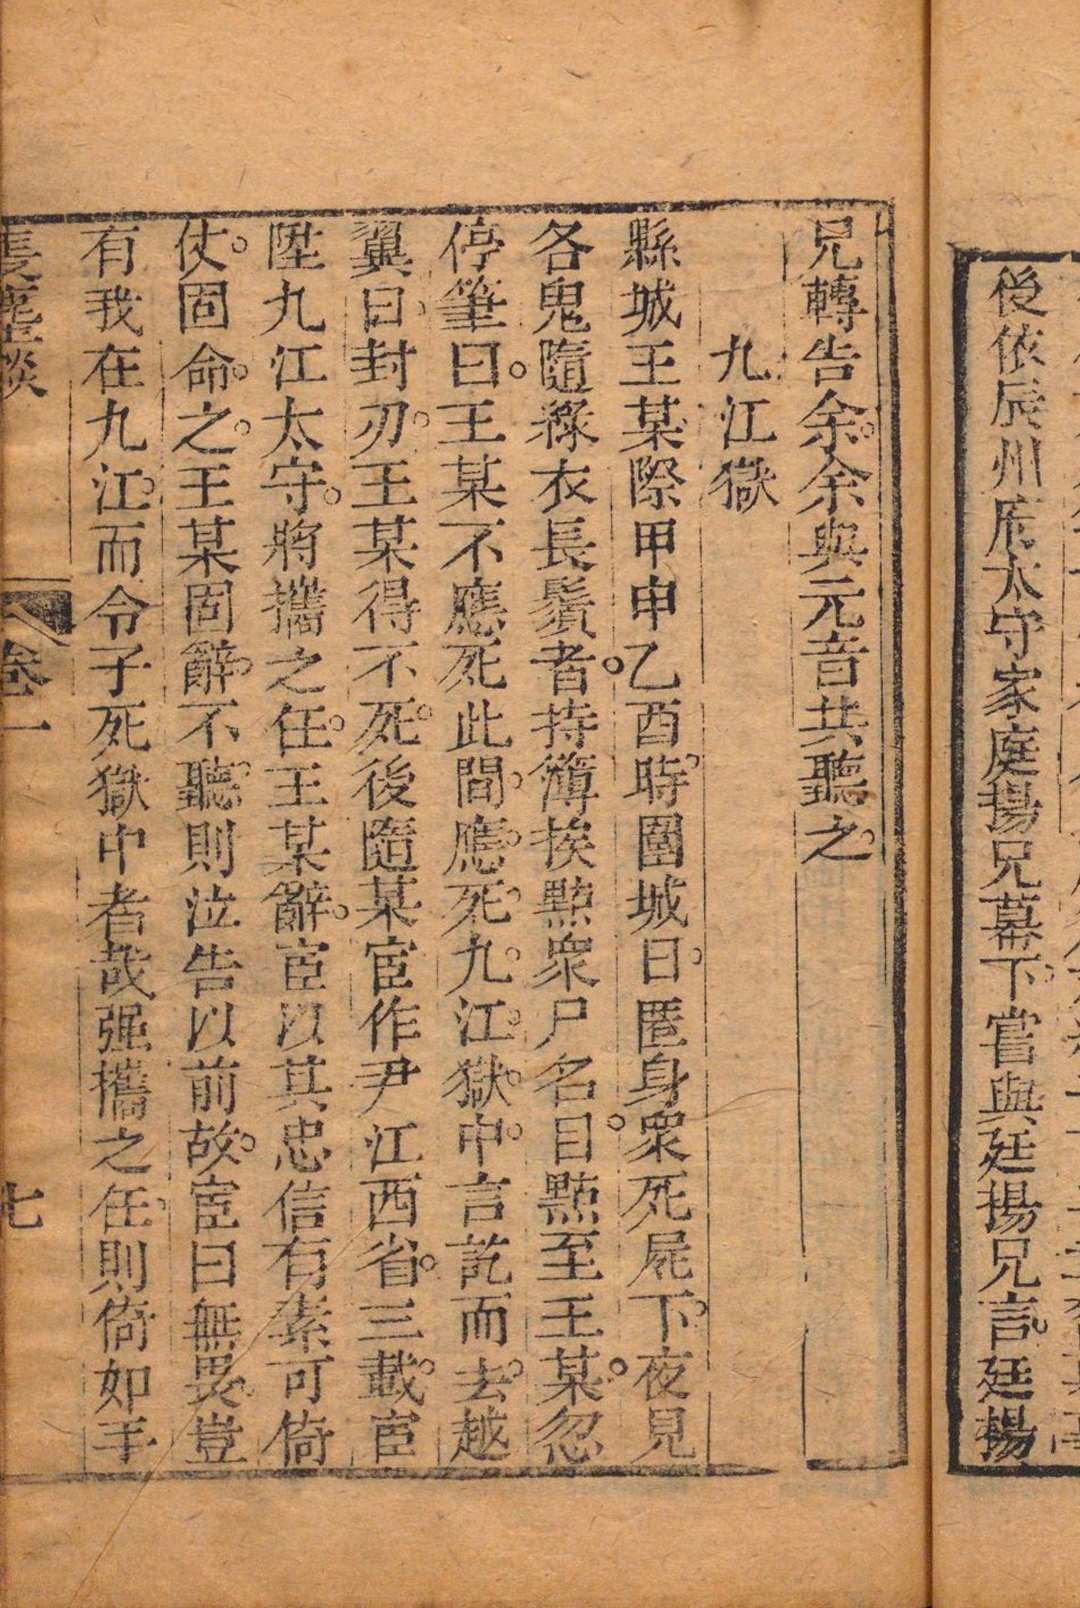 後依辰州辰太守家庭揚兄幕下嘗與廷揚兄言廷揚
兄轉告余余與元音共聽之
九江獄
縣城王某際甲申乙酉時圍城日匿身衆死屍下夜見
各鬼隨綠衣長鬚者持簿挨㸃衆尸名目㸃至王某忽
停筆曰王某不應死此間應死九江獄中言訖而去越
翼日封刃王某得不死後隨某宦作尹江西省三載宦
陞九江太守將攜之任王某辭宦以其忠信有素可倚
仗固命之王某固辭不聽則泣告以前故宦曰無畏豈
有我在九江而令子死獄中者哉强攜之任則倚如手
談
卷一
七